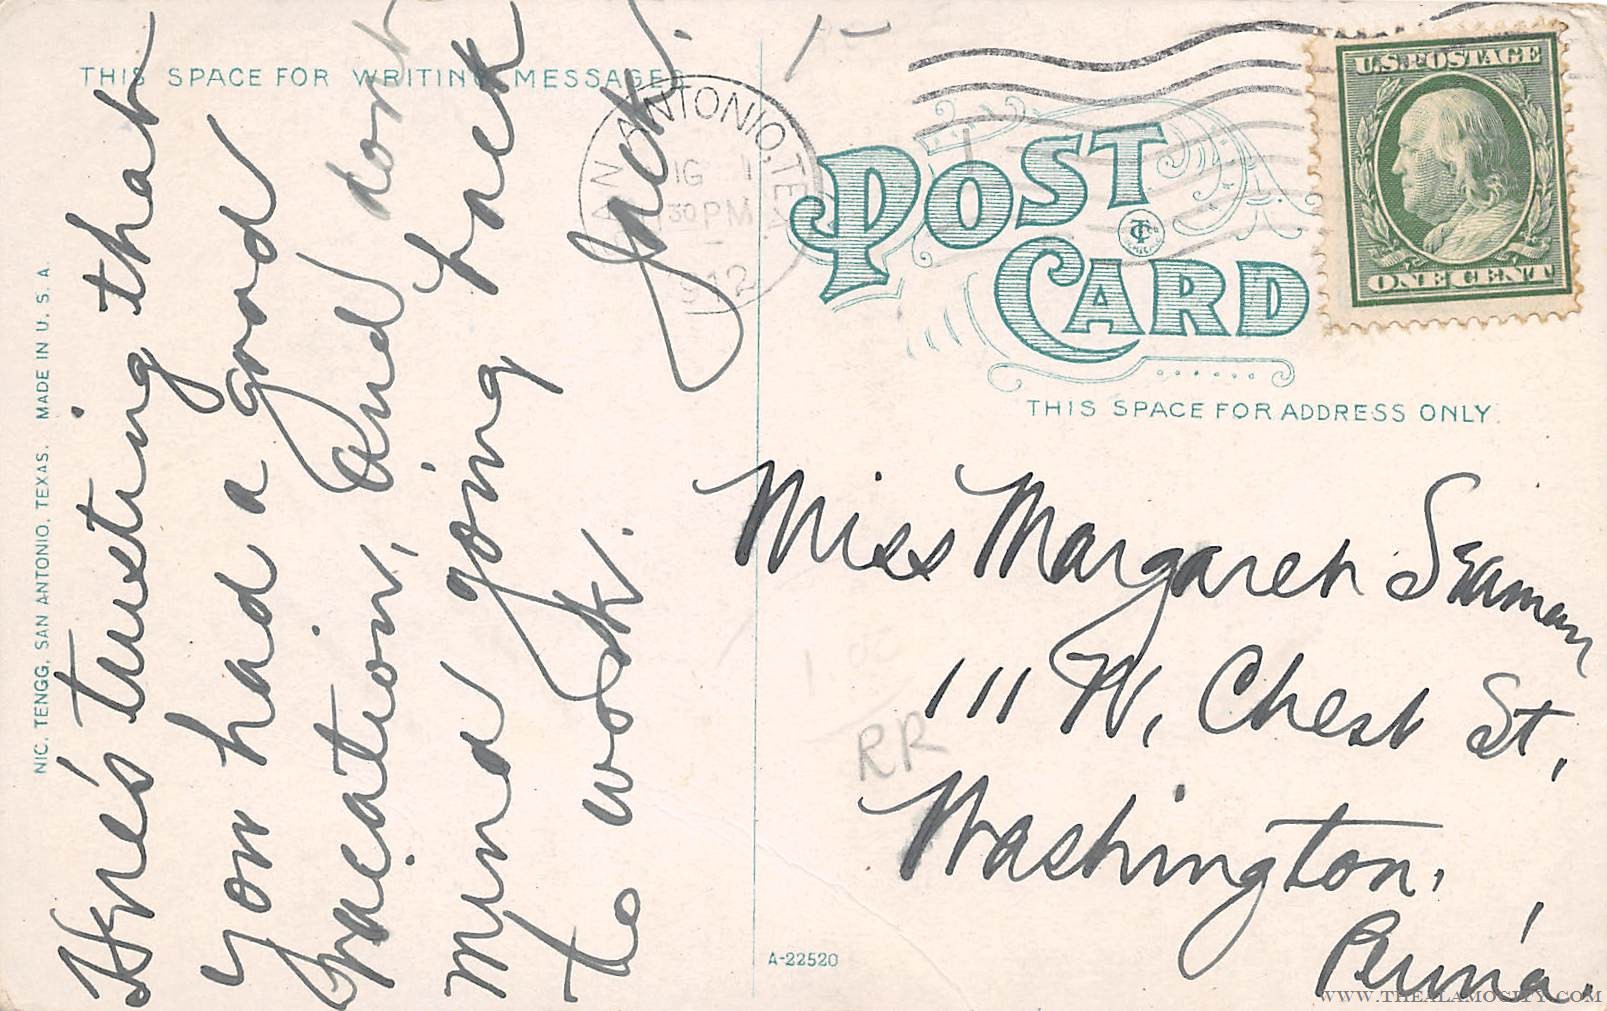 THIS SPACE FOR WRITING MESSAGES
Here's trusting that
you had a good
vacation, and dont
mind going back
to work.
Jack.
NIC. TENGG, SAN ANTONIO, TEXAS. MADE IN U. S. A.
SAN ANTONIO, TEX
1
30 PM
POST
CARD
U.S. POSTAGE
ONE CENT
THIS SPACE FOR ADDRESS ONLY.
Miss Margaret Seaman
111 W. Chest St,
Washington,
Penn'a.
1 00
RR
A-22520
WWW.THEALAMOCITY.COM